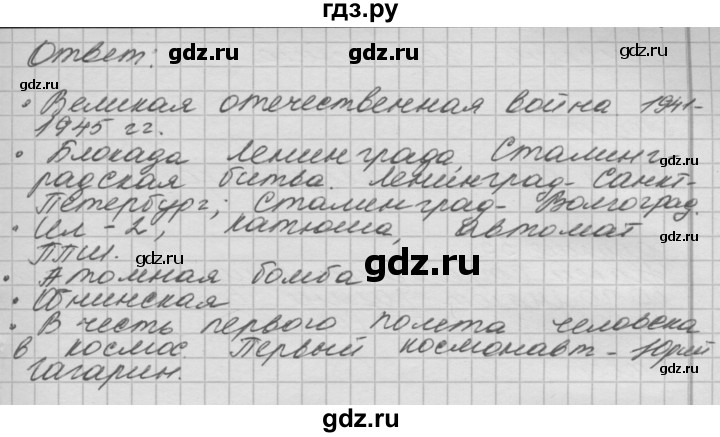 гдз.ру
Ответ:
gdz.ru gdz.ru
gdz.ru
• Великая отечественная война 1941-
1945 гг.
• Блокада Ленинграда Сталинг
gdz.ru gdz.ru
радская битва. Ленинград- Санкт-
Петербург; Сталинград- Волгоград.
gdz.ru gdz.ru
• Ил-2, катюша, автомат
ППШ.
gdz.ru
• Атомная бомба
gdz.ru
• Обнинская
gdz.ru
• В честь первого полета человека
в космос. Первый космонавт - Юрий
gdz.ru
Гагарин.
gdz.ru
gdz.ru